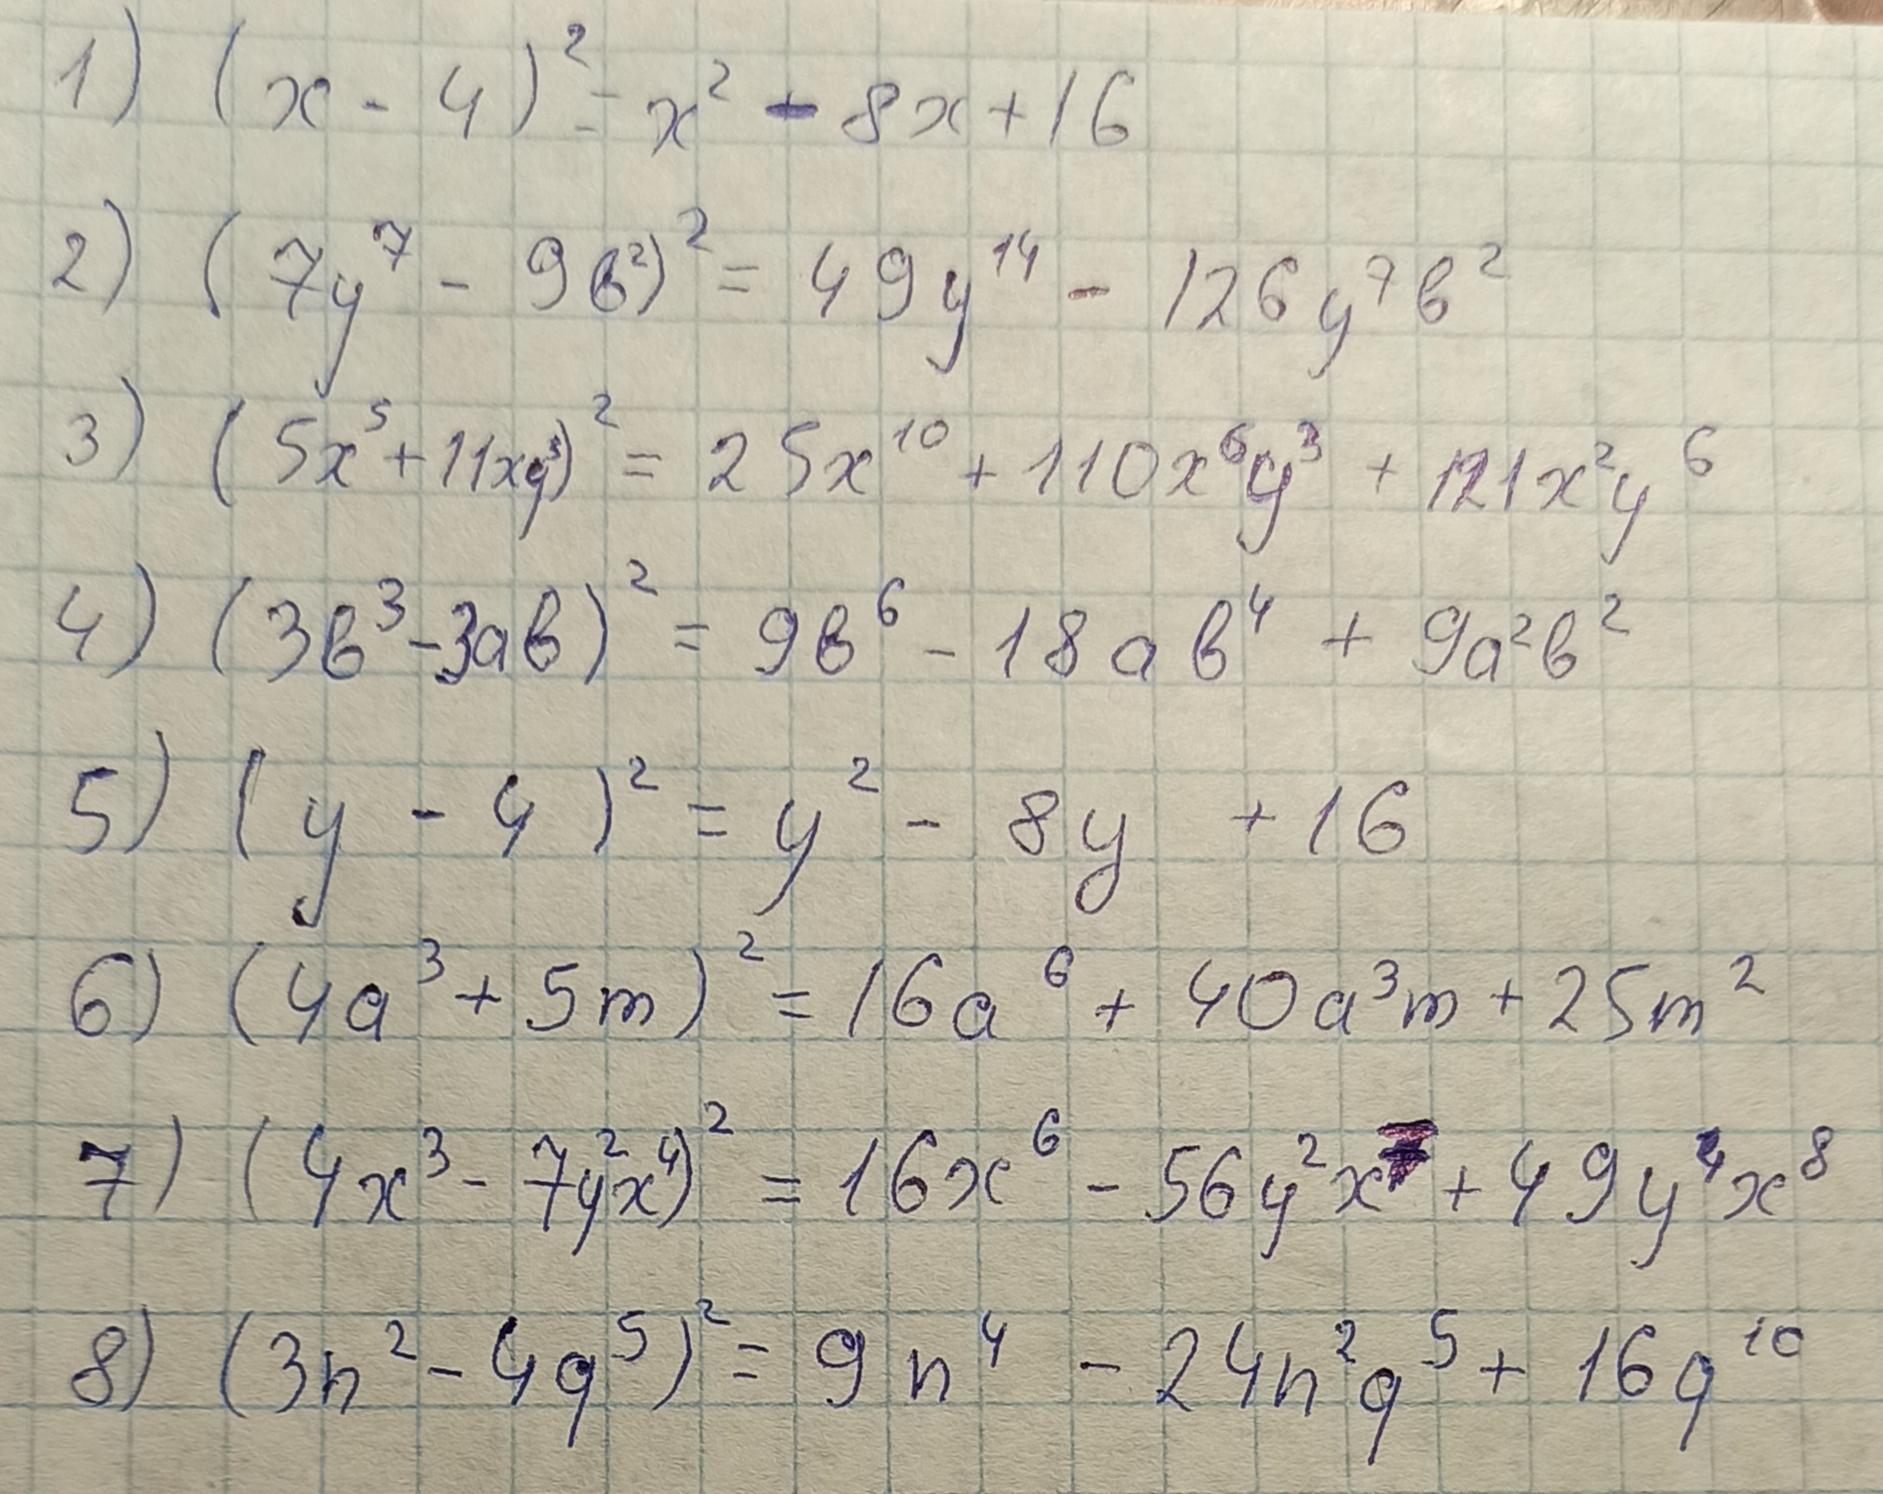 1) (x - 4)² = x² - 8x + 16
2) (7y⁷ - 9b²)² = 49y¹⁴ - 126y⁷b²
3) (5x⁵ + 11xy³)² = 25x¹⁰ + 110x⁶y³ + 121x²y⁶
4) (3b³ - 3ab)² = 9b⁶ - 18ab⁴ + 9a²b²
5) (y - 4)² = y² - 8y + 16
6) (4a³ + 5m)² = 16a⁶ + 40a³m + 25m²
7) (4x³ - 7y²x⁴)² = 16x⁶ - 56y²x⁷ + 49y⁴x⁸
8) (3n² - 4q⁵)² = 9n⁴ - 24n²q⁵ + 16q¹⁰